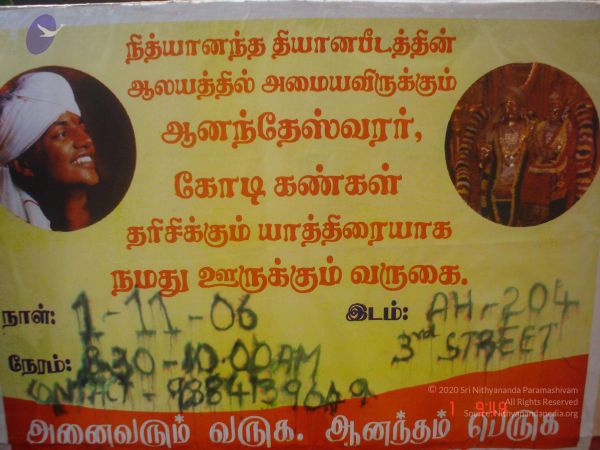 நித்யானந்த தியானபீடத்தின்
ஆலயத்தில் அமையவிருக்கும்
ஆனந்தேஸ்வரர்,
கோடி கண்கள்
தரிசிக்கும் யாத்திரையாக
நமது ஊருக்கும் வருகை.
நாள்: 1-11-06 இடம்: AH-204
3rd STREET
நேரம்: 8.30-10.00AM
CONTACT - 9884139649
© 2020 Sri Nithyananda Paramashivam
All Rights Reserved
Source: Nithyanandapedia.org
1 9:19
அனைவரும் வருக. ஆனந்தம் பெருக